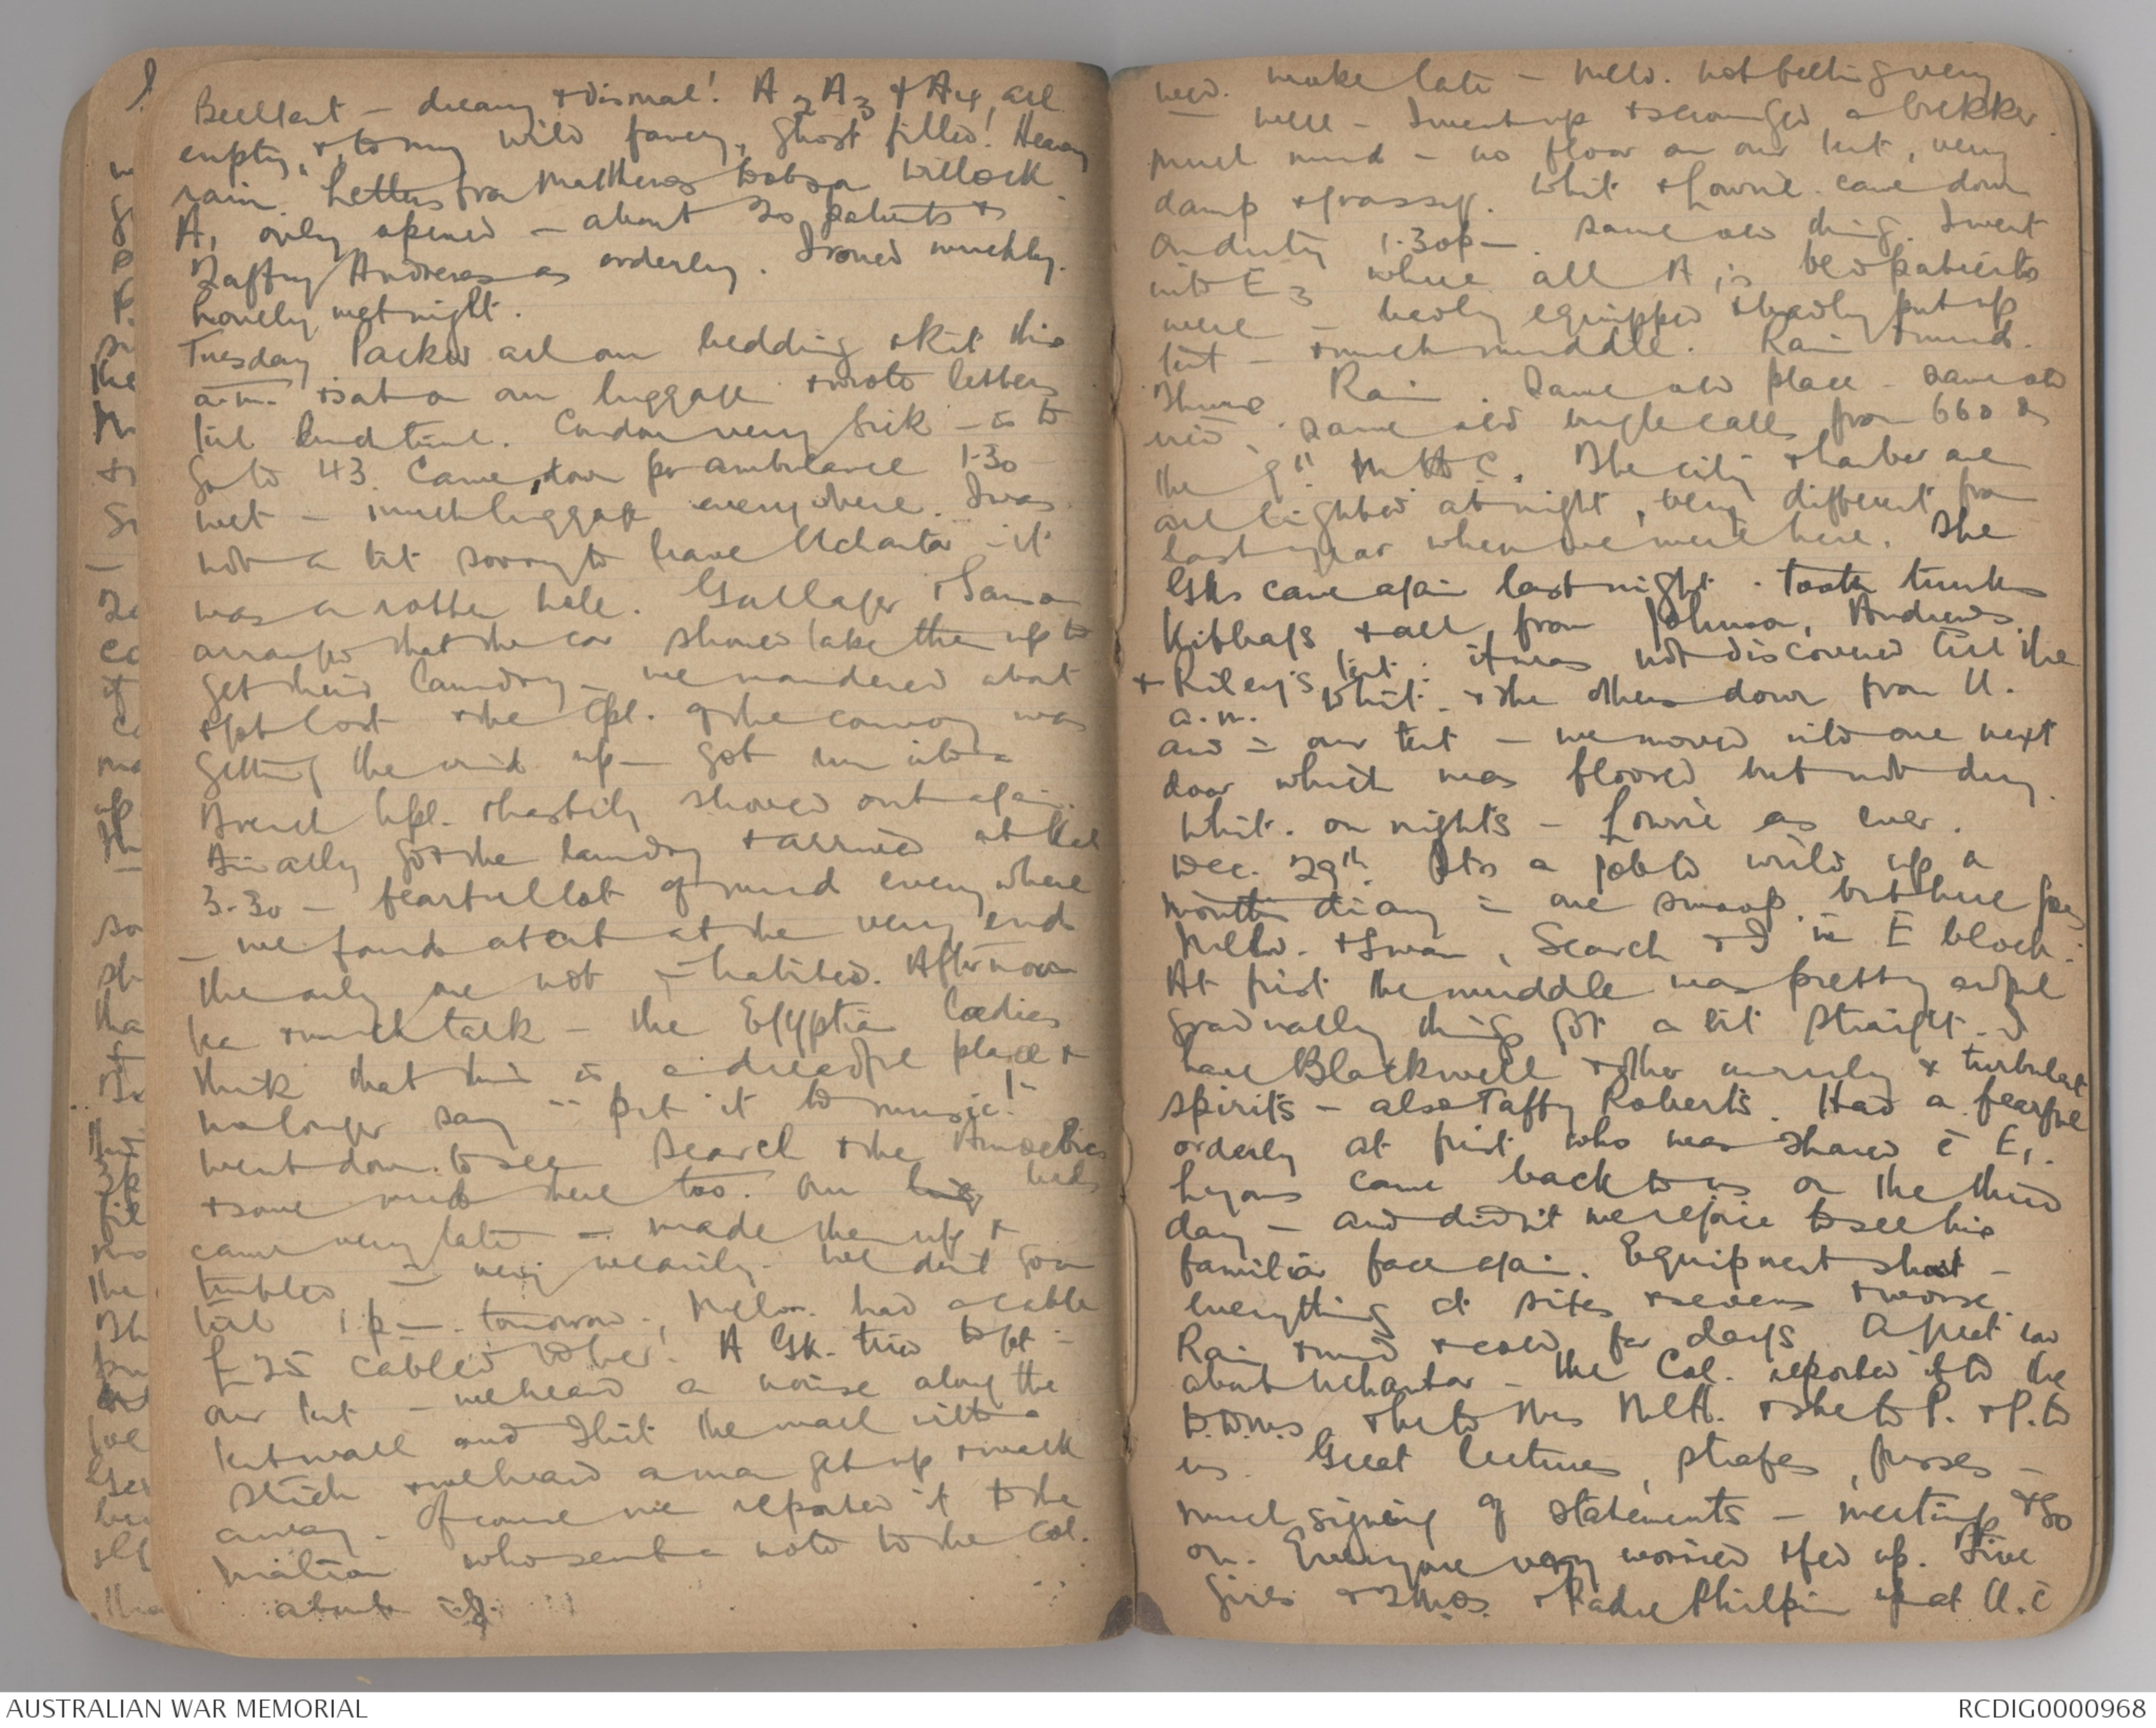 dreary & dismal! A2 A3 & A4, all
empty, & to my wild fancy, ghost filled! Heavy
rain. Letters from Matthews Willock
A1 only opened – about 20 patients &
Taffy Andrews as orderly. Ironed muchly.
Lonely wet night.
Tuesday Packed all our bedding & kit this
a.m. & sat on our luggage & wrote letters
till lunch time. Condon very sick – is to
go to 43. Came down per ambulance 1.30
wet – much luggage everywhere. I was
not a bit sorry to leave Uchantar – it
was a rotten hole. &
arranged that the car should take them up to
get their laundry – we wandered about
& got lost & the Cpl. of the convoy was
getting the wind up – got run into a
French hpl. & hastily shoved out again.
Finally got the laundry & arrived at Kal
3.30 – fearful lot of mud everywhere
– we found a tent at the very end
the only one not inhabited. Afternoon
tea & much talk – the Egyptian ladies
think that this is a dreadful place &
no longer say "put it to music!"
Went down to see Search & the Amoebics
& some mud there too. Our beds
came very late – made them up &
tumbled in very wearily. We don't go on
till 1 pm tomorrow. Mellor. had a cable
£25 cabled to her! A Gk. tried to get in
our tent – we heard a noise along the
tent wall and I hit the wall with a
stick & we heard a man get up & walk
away. Of course we reported it to the
Matron who sent a note to the Col.
about it.
Wed. Woke late – Mello. not feeling very
well – I went up & scrounged a brekker
much mud – no floor on our tent, very
damp & grassy. Whit & Lowrie came down
On duty 1.30 pm. Same old thing. I went
into E3 where all A1's bed patients
were – badly equipped & badly put up
tent – & much muddle. Rain & mud.
Thurs. Rain. Same old place – same old
view, same old bugle calls from 668 &
the "g". The city & harbour are
all lighted at night, very different from
last year when we were here. The
Gks came again last night. Took trunks
Kitbags & all from Johnson, Andrews
& Riley's tent: it was not discovered till the
a.m. Whit. & the others down from U.
and in our tent – we moved into one next
door which was floored but not dry.
Whit. on nights – Lowrie as ever.
Dec. 29th. Its a job to write up a
month's diary in one swoop, but here goes
Mello. & Swan, Search & I in E block.
At first the muddle was pretty awful
gradually things got a bit straight. I
have Blackwell & other unruly & turbulent
spirits – also Taffy Roberts. Had a fearful
orderly at first who was shared c E1.
Lyons came back to us on the third
day – and didn't we rejoice to see his
familiar face again. Equipment short –
everything at sixes & sevens & worse.
Rain & mud & cold for days. A great row
about Uchantar – the Col. reported it to the
D.D.M.S. & he to Mrs McH. & she to P. & P. to
us. Great lectures, strafes, fusses –
much signing of statements – meetings & so
on. Everyone very worried & fed up. Five
girls & 3 M.O's. & Padre Philpin up at U. c
AUSTRALIAN WAR MEMORIAL
RCDIG0000968